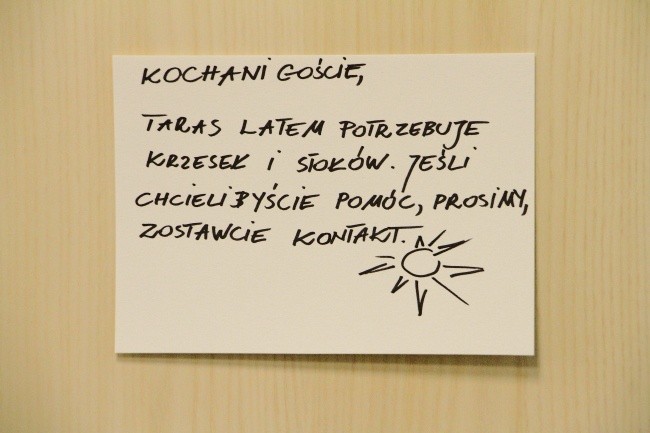 KOCHANI GOŚCIE,
TARAS LATEM POTRZEBUJE
KRZESEŁ I STOŁÓW. JEŚLI
CHCIELIBYŚCIE POMÓC, PROSIMY,
ZOSTAWCIE KONTAKT.